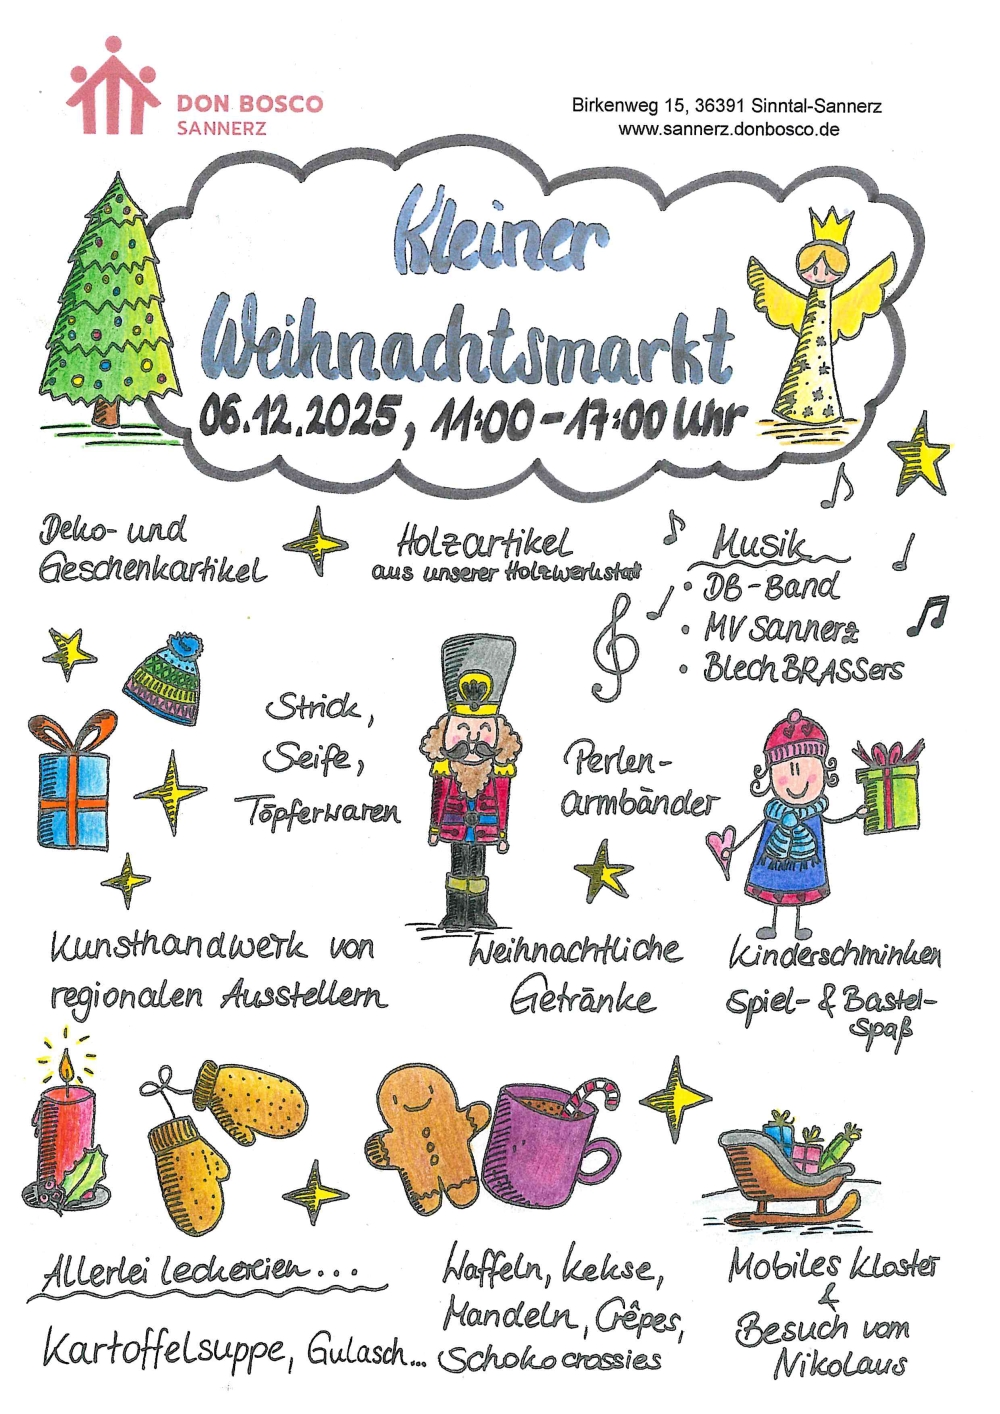 DON BOSCO
SANNERZ
Birkenweg 15, 36391 Sinntal-Sannerz
www.sannerz.donbosco.de
Kleiner
Weihnachtsmarkt
06.12.2025, 11:00-17:00 Uhr
Deko- und
Geschenkartikel
Holzartikel
aus unserer Holzwerkstatt
Musik
• DB-Band
• MV Sannerz
• BlechBRASSers
Strick,
Seife,
Töpferwaren
Perlen-
armbänder
Kunsthandwerk von
regionalen Ausstellern
Weihnachtliche
Getränke
Kinderschminken
Spiel- & Bastel-
spaß
Allerlei Leckereien...
Kartoffelsuppe, Gulasch...
Waffeln, Kekse,
Mandeln, Crêpes,
Schokocrossies
Mobiles Kloster
&
Besuch vom
Nikolaus